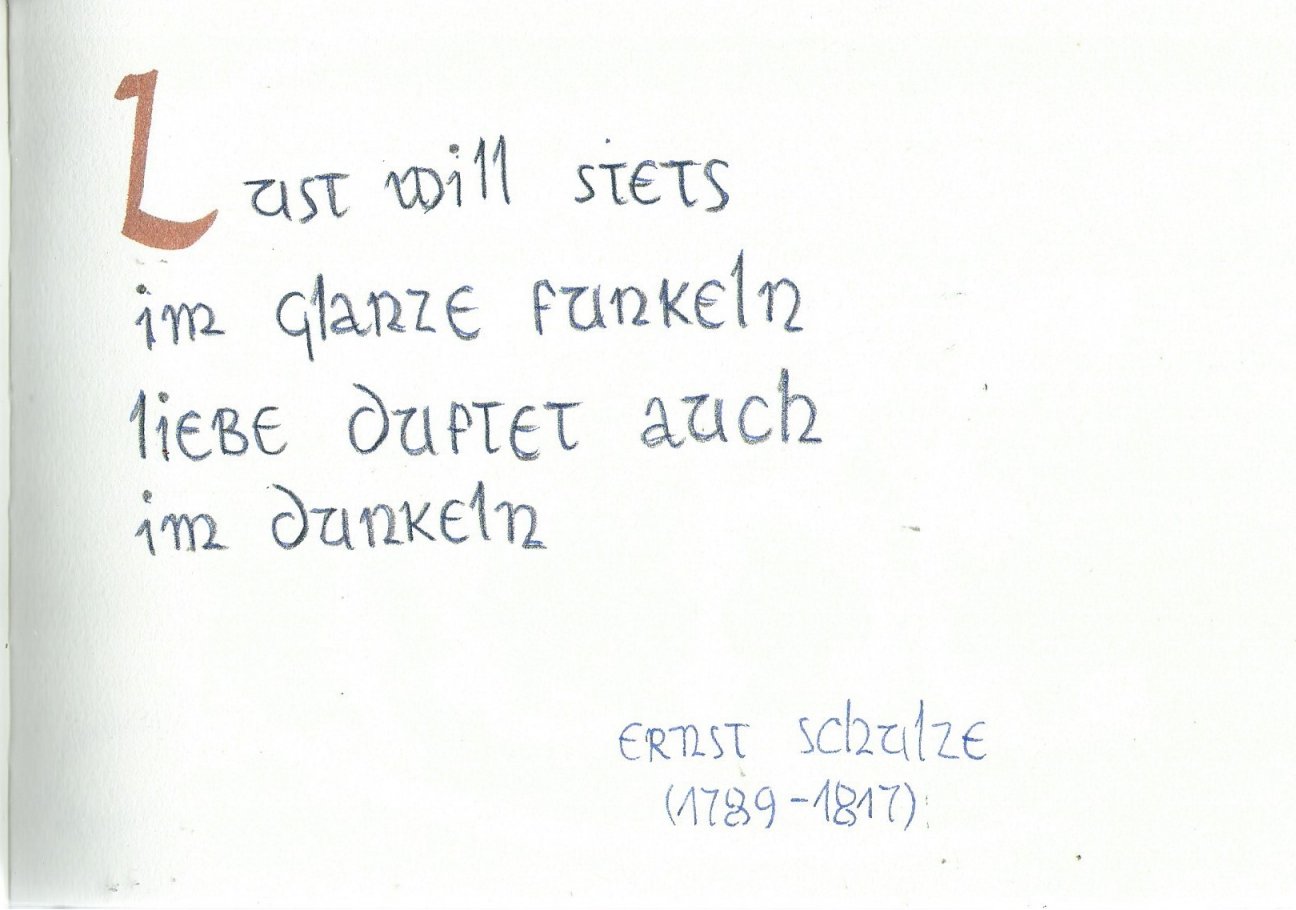 Lust will stets
im glanze funkeln
liebe duftet auch
im dunkeln
ernst schulze
(1789-1817)